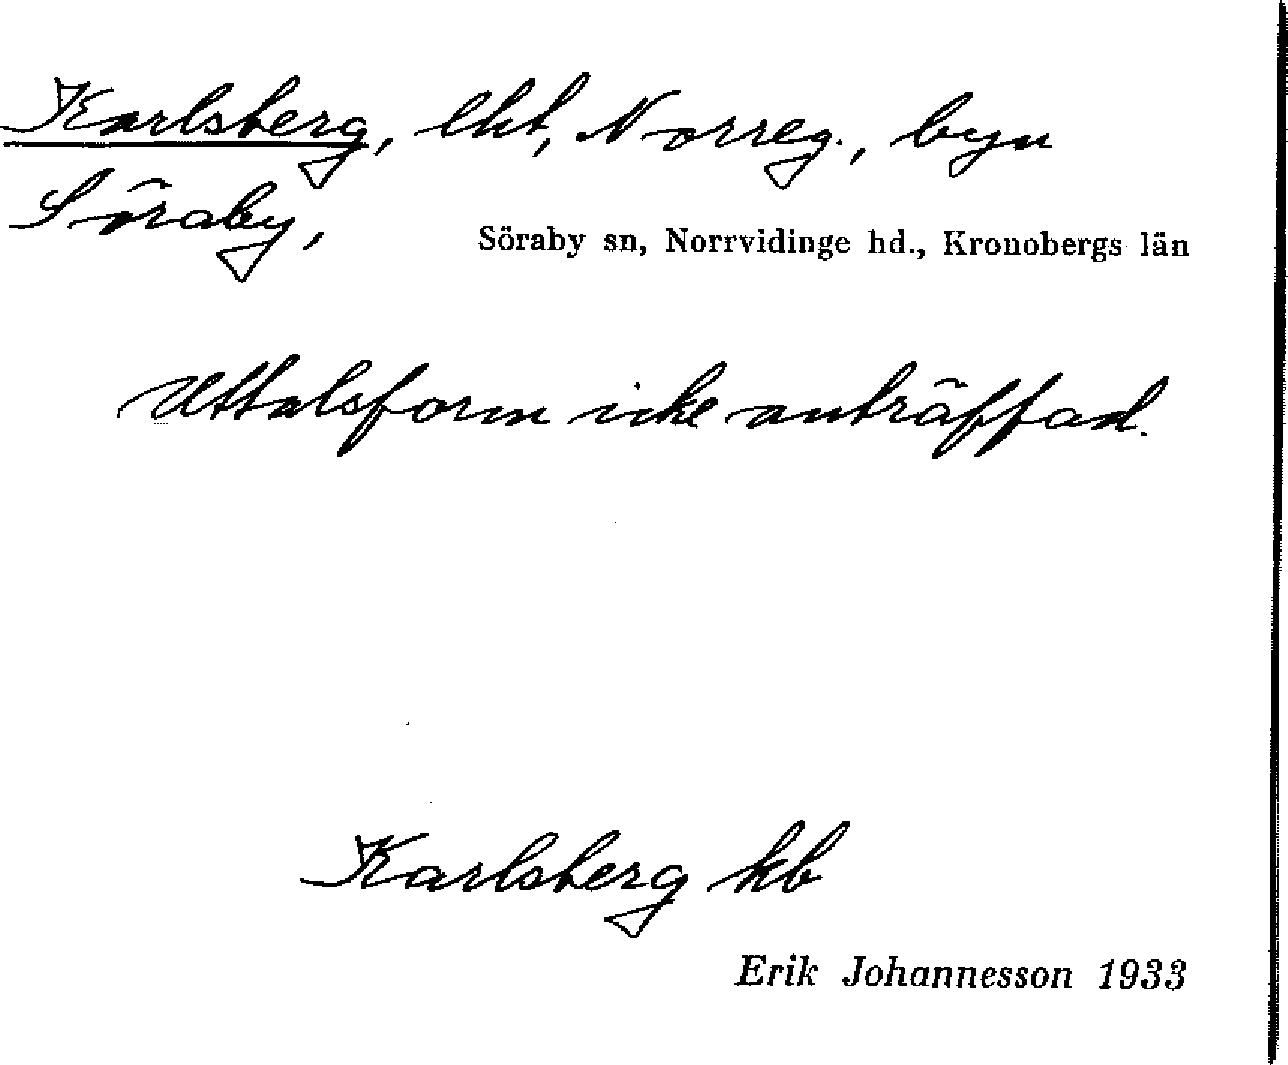 Karlsberg, lht, Norreg., byn
Söraby,
Söraby sn, Norrvidinge hd., Kronobergs län
Uttalsform icke anträffad.
Karlsberg kb
Erik Johannesson 1933